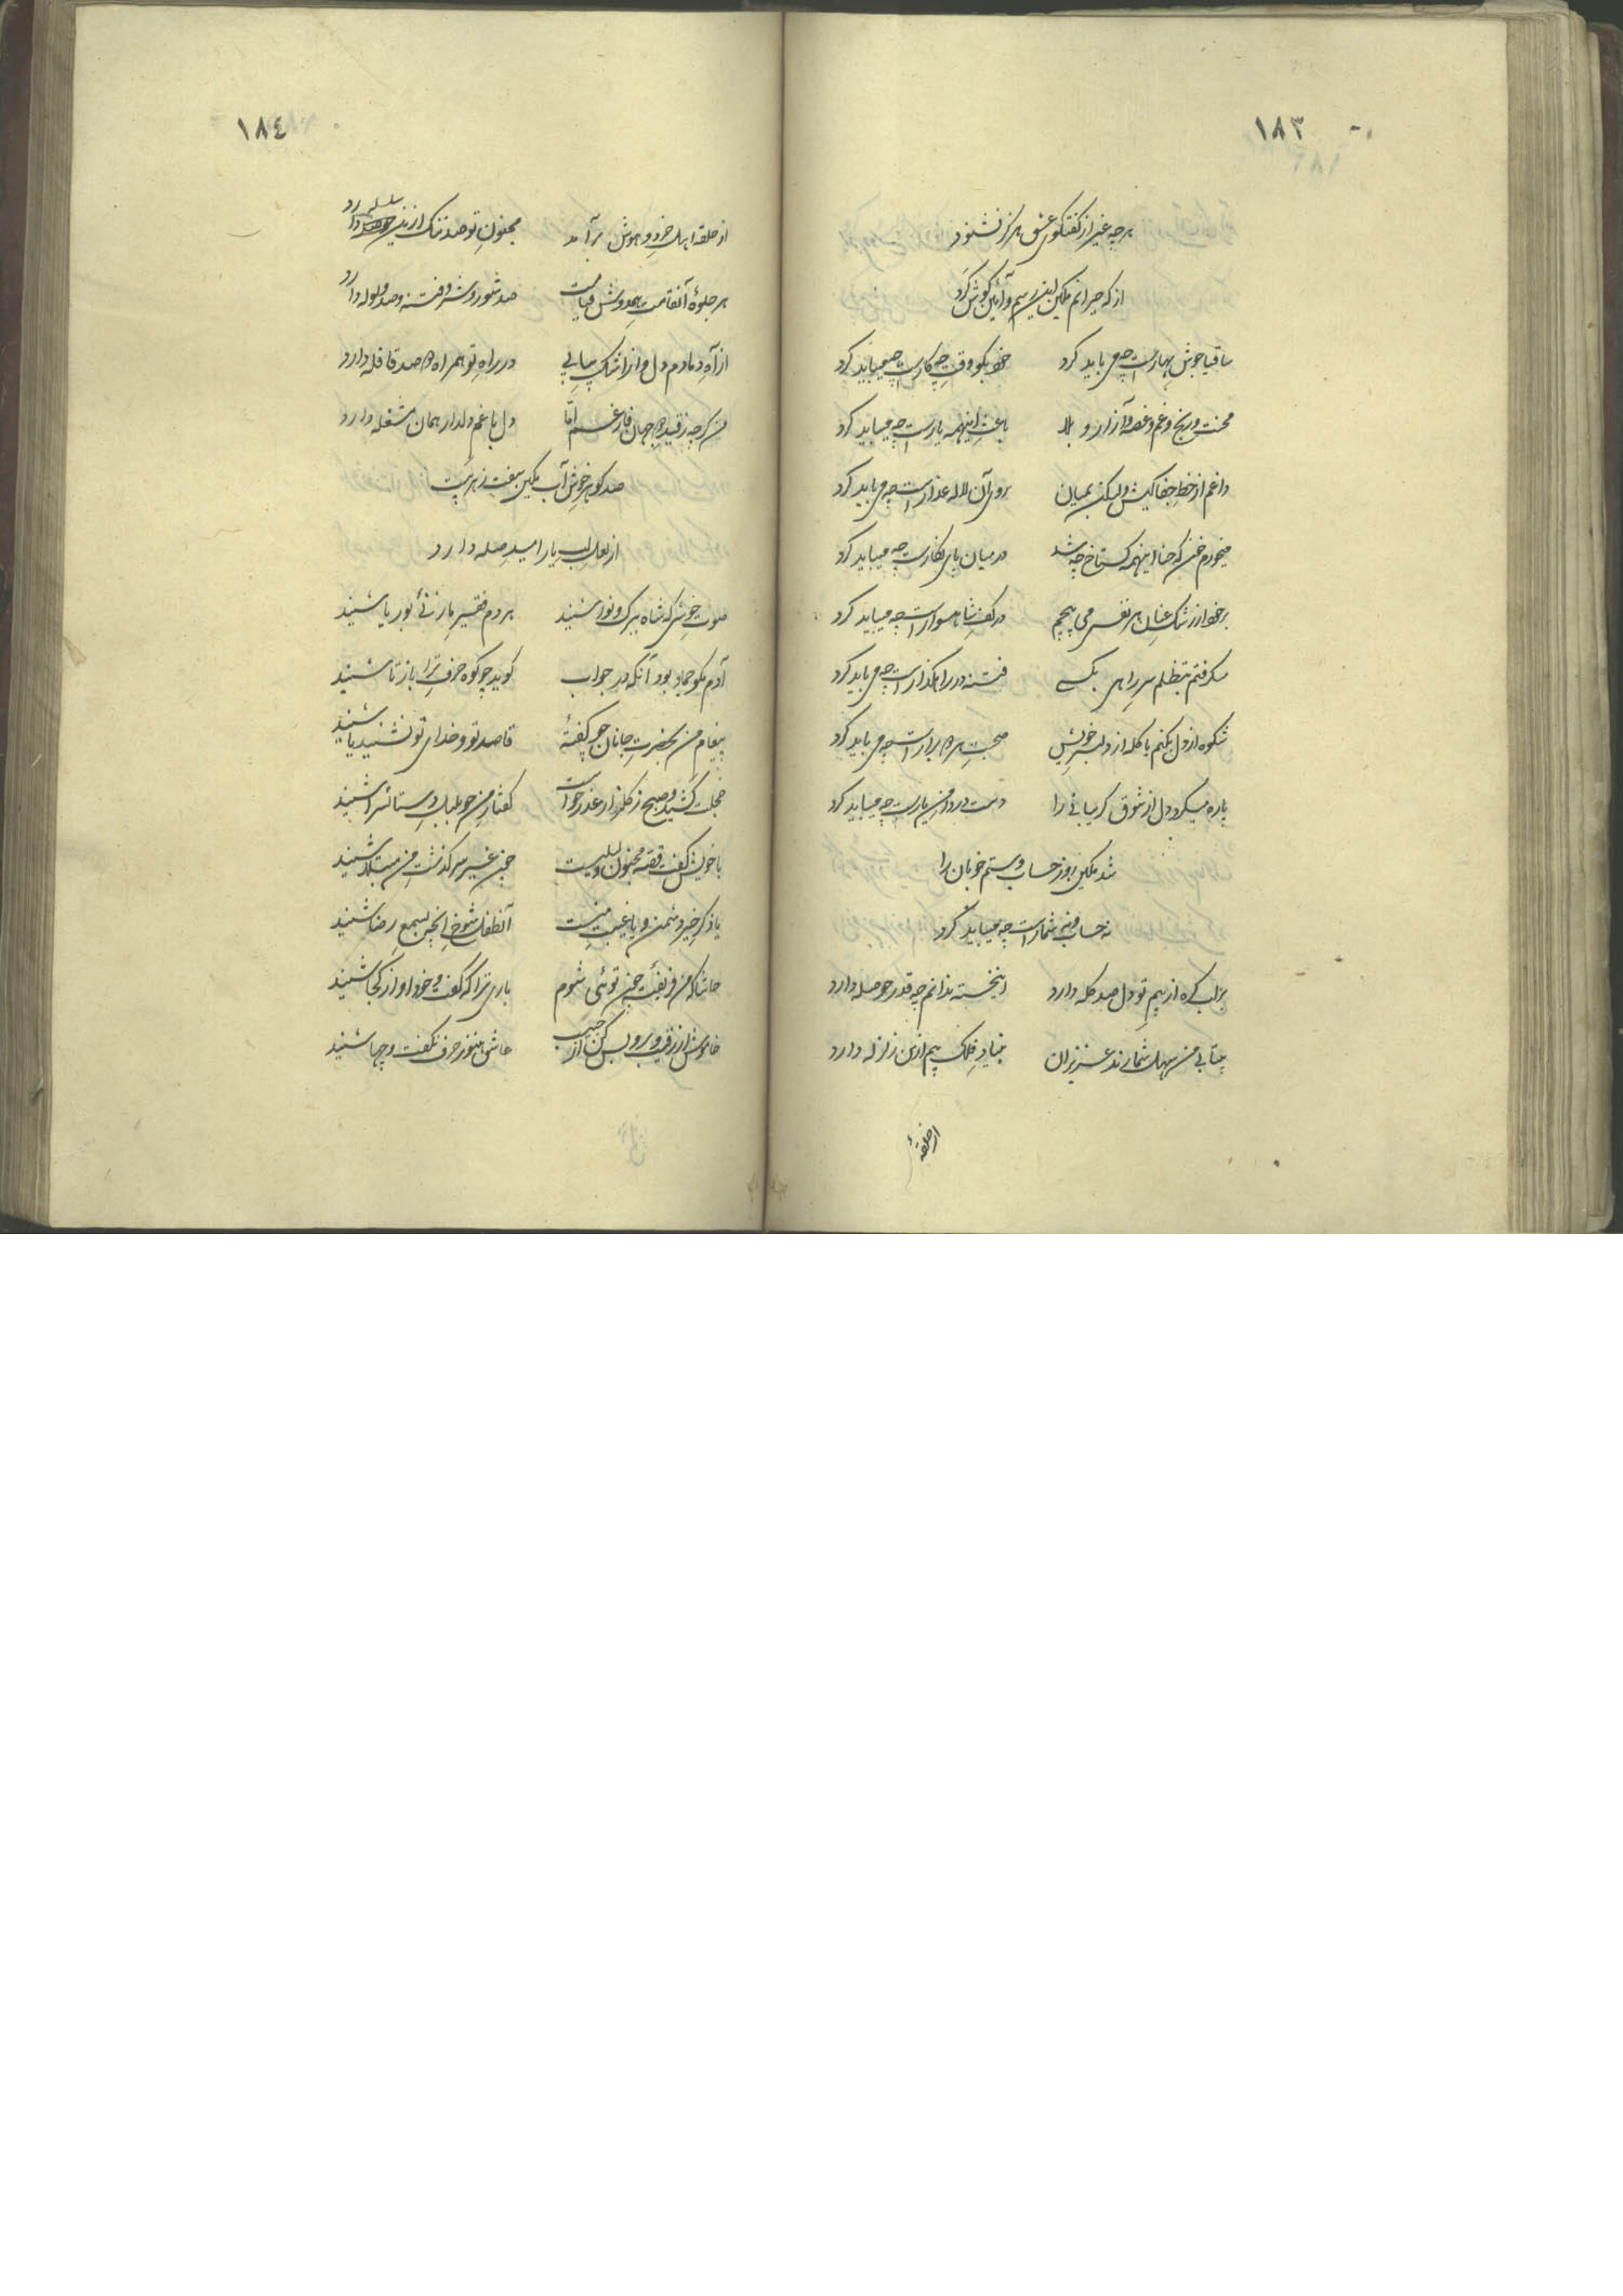 ١٨٣
هر چه غیر از گفتگوی عشق هرگز نشنود
از که حیرانم مکین این رسم و آئین گوش کرد
ساقیا جوش بهارست چه می باید کرد خود بگو وقت چه کارست چه میباید کرد
محنت و رنج و غم و غصه و آزار و بلا باعث اینهمه یارست چه میباید کرد
داغم از خط جفا کیش ولیکن بمیان روی آن لاله عذارست چه می باید کرد
میخورم خون که حنا اینهمه گستاخ چه شد در میان پای نگارست چه میباید کرد
بر خود از رشک عنان هر نفس می پیچم در کف شاهسوارست چه میباید کرد
سر راهی بکسی فتنه در راهگذارست چه می باید کرد
شکوه از دل بکنم یا گله از دلبر خویش صحبت هر دو برارست چه می باید کرد
پاره میکرد دل از شوق گریبانی را دست در دامن یارست چه میباید کرد
شد مکین روز حساب و ستم خوبان را
نه حساب و نه شمارست چه میباید کرد
بر لب گره از بیم تو دل صد گله دارد اینخسته ندانم چه قدر حوصله دارد
بیتابی من سهل شمارند عزیزان بنیاد فلک هم ازین زلزله دارد
از حلقهٔ
١٨٤
از حلقه اهل خرد و هوش برآمد مجنون تو صد ننگ ازین سلسله دارد
هر جلوهٔ آنقامت قیامت صد شور و شر و فتنه و صد ولوله دارد
از آه دمادم دل و از اشک پیاپی در راه تو همراه دو صد قافله دارد
من گرچه ز قید دو جهان فارغم اما دل با غم دلدار همان مشغله دارد
صد گوهر خوش آب مکین سفت ز هر بیت
از لعل لب یار امید صله دارد
صوت خوشی که شاه ببرگ و نوا شنید هر دم فقیر ما ز نی بوریا شنید
آدم مگو جماد بود آنکه در جواب گوید چو کوه حرف ترا باز تا شنید
پیغام من بحضرت جانان چو گفتهٔ قاصد تو و خدای تو نشنید یا شنید
خجلت کشید و صبح ز گلزار عذر خواست گفتار من چو بلبل دستانسرا شنید
با خویش گفت قصه مجنون و لیلی است چون غیر سرگذشت من مبتلا شنید
یا ذکر خیر دشمن و یا غیبت منست آنطفل شوخ اینچنین بسمع رضا شنید
حاشا که من فریفتهٔ چون توئی شوم باری ترا که گفت و خود او از کجا شنید
خاموش از رقیب و بس کن از حبیب عاشق هنوز حرف نگفت و چها شنید